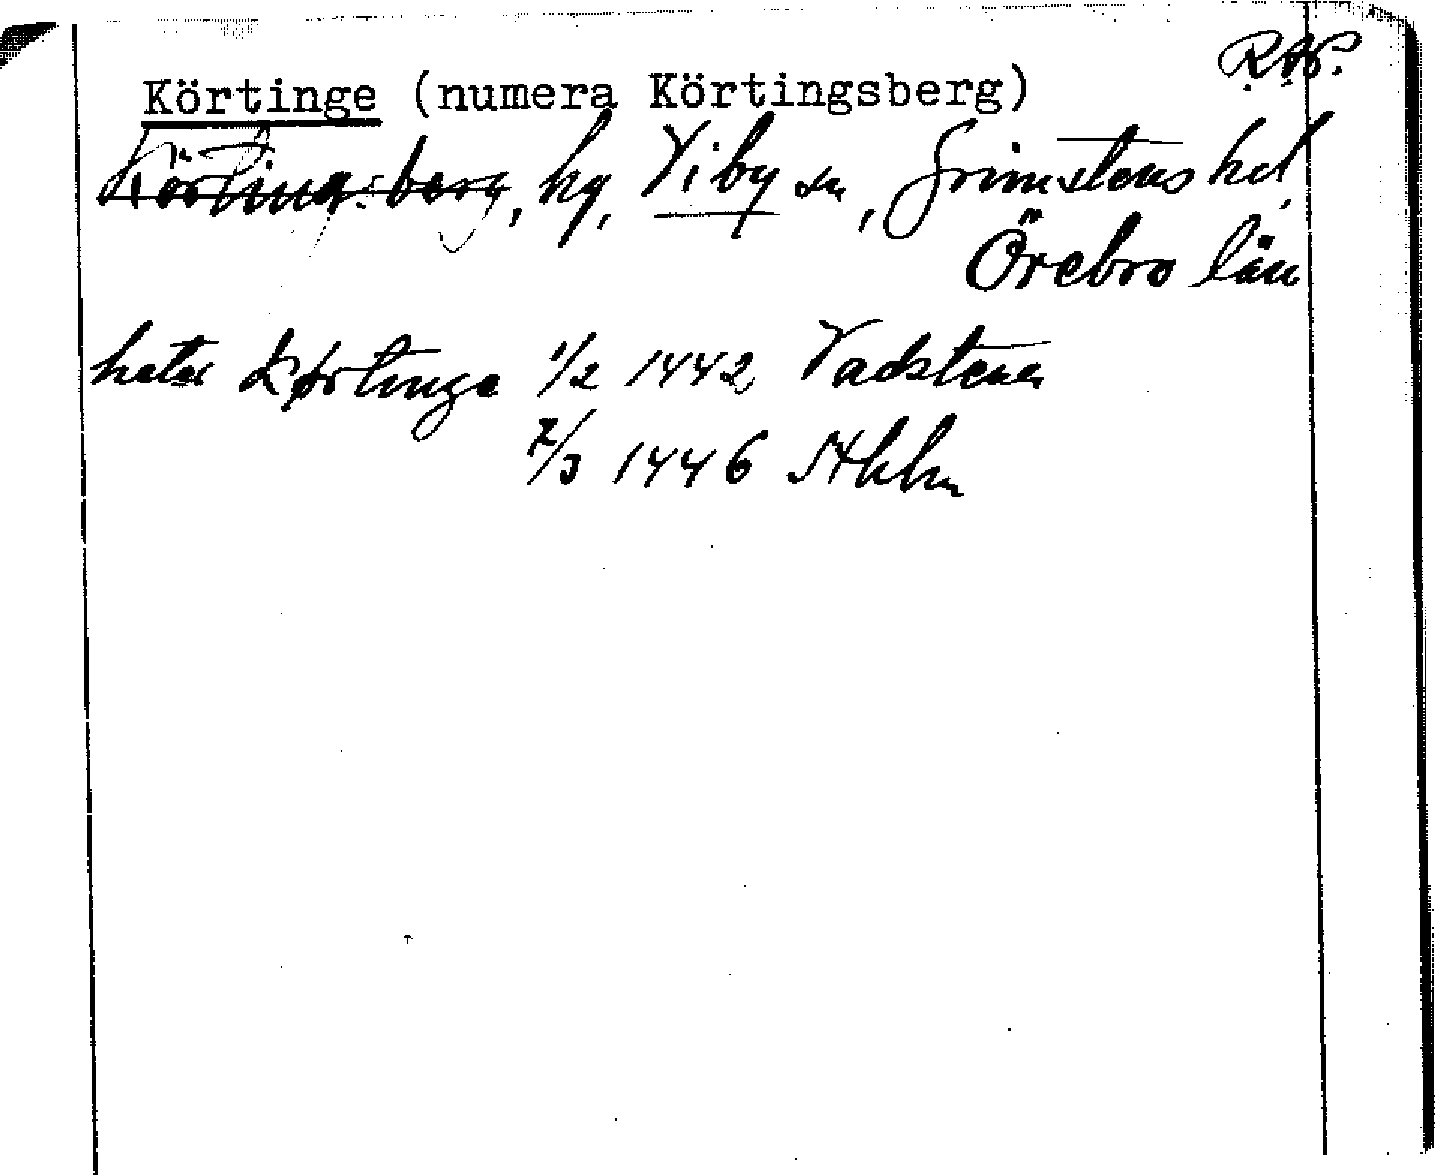 R.A.P.
Körtinge (numera Körtingsberg)
Körtingsberg, hg, Viby sn, Grimstens hd,
Örebro län
heter Kørtinge 1/2 1442 Vadstena
7/3 1446 Sthlm